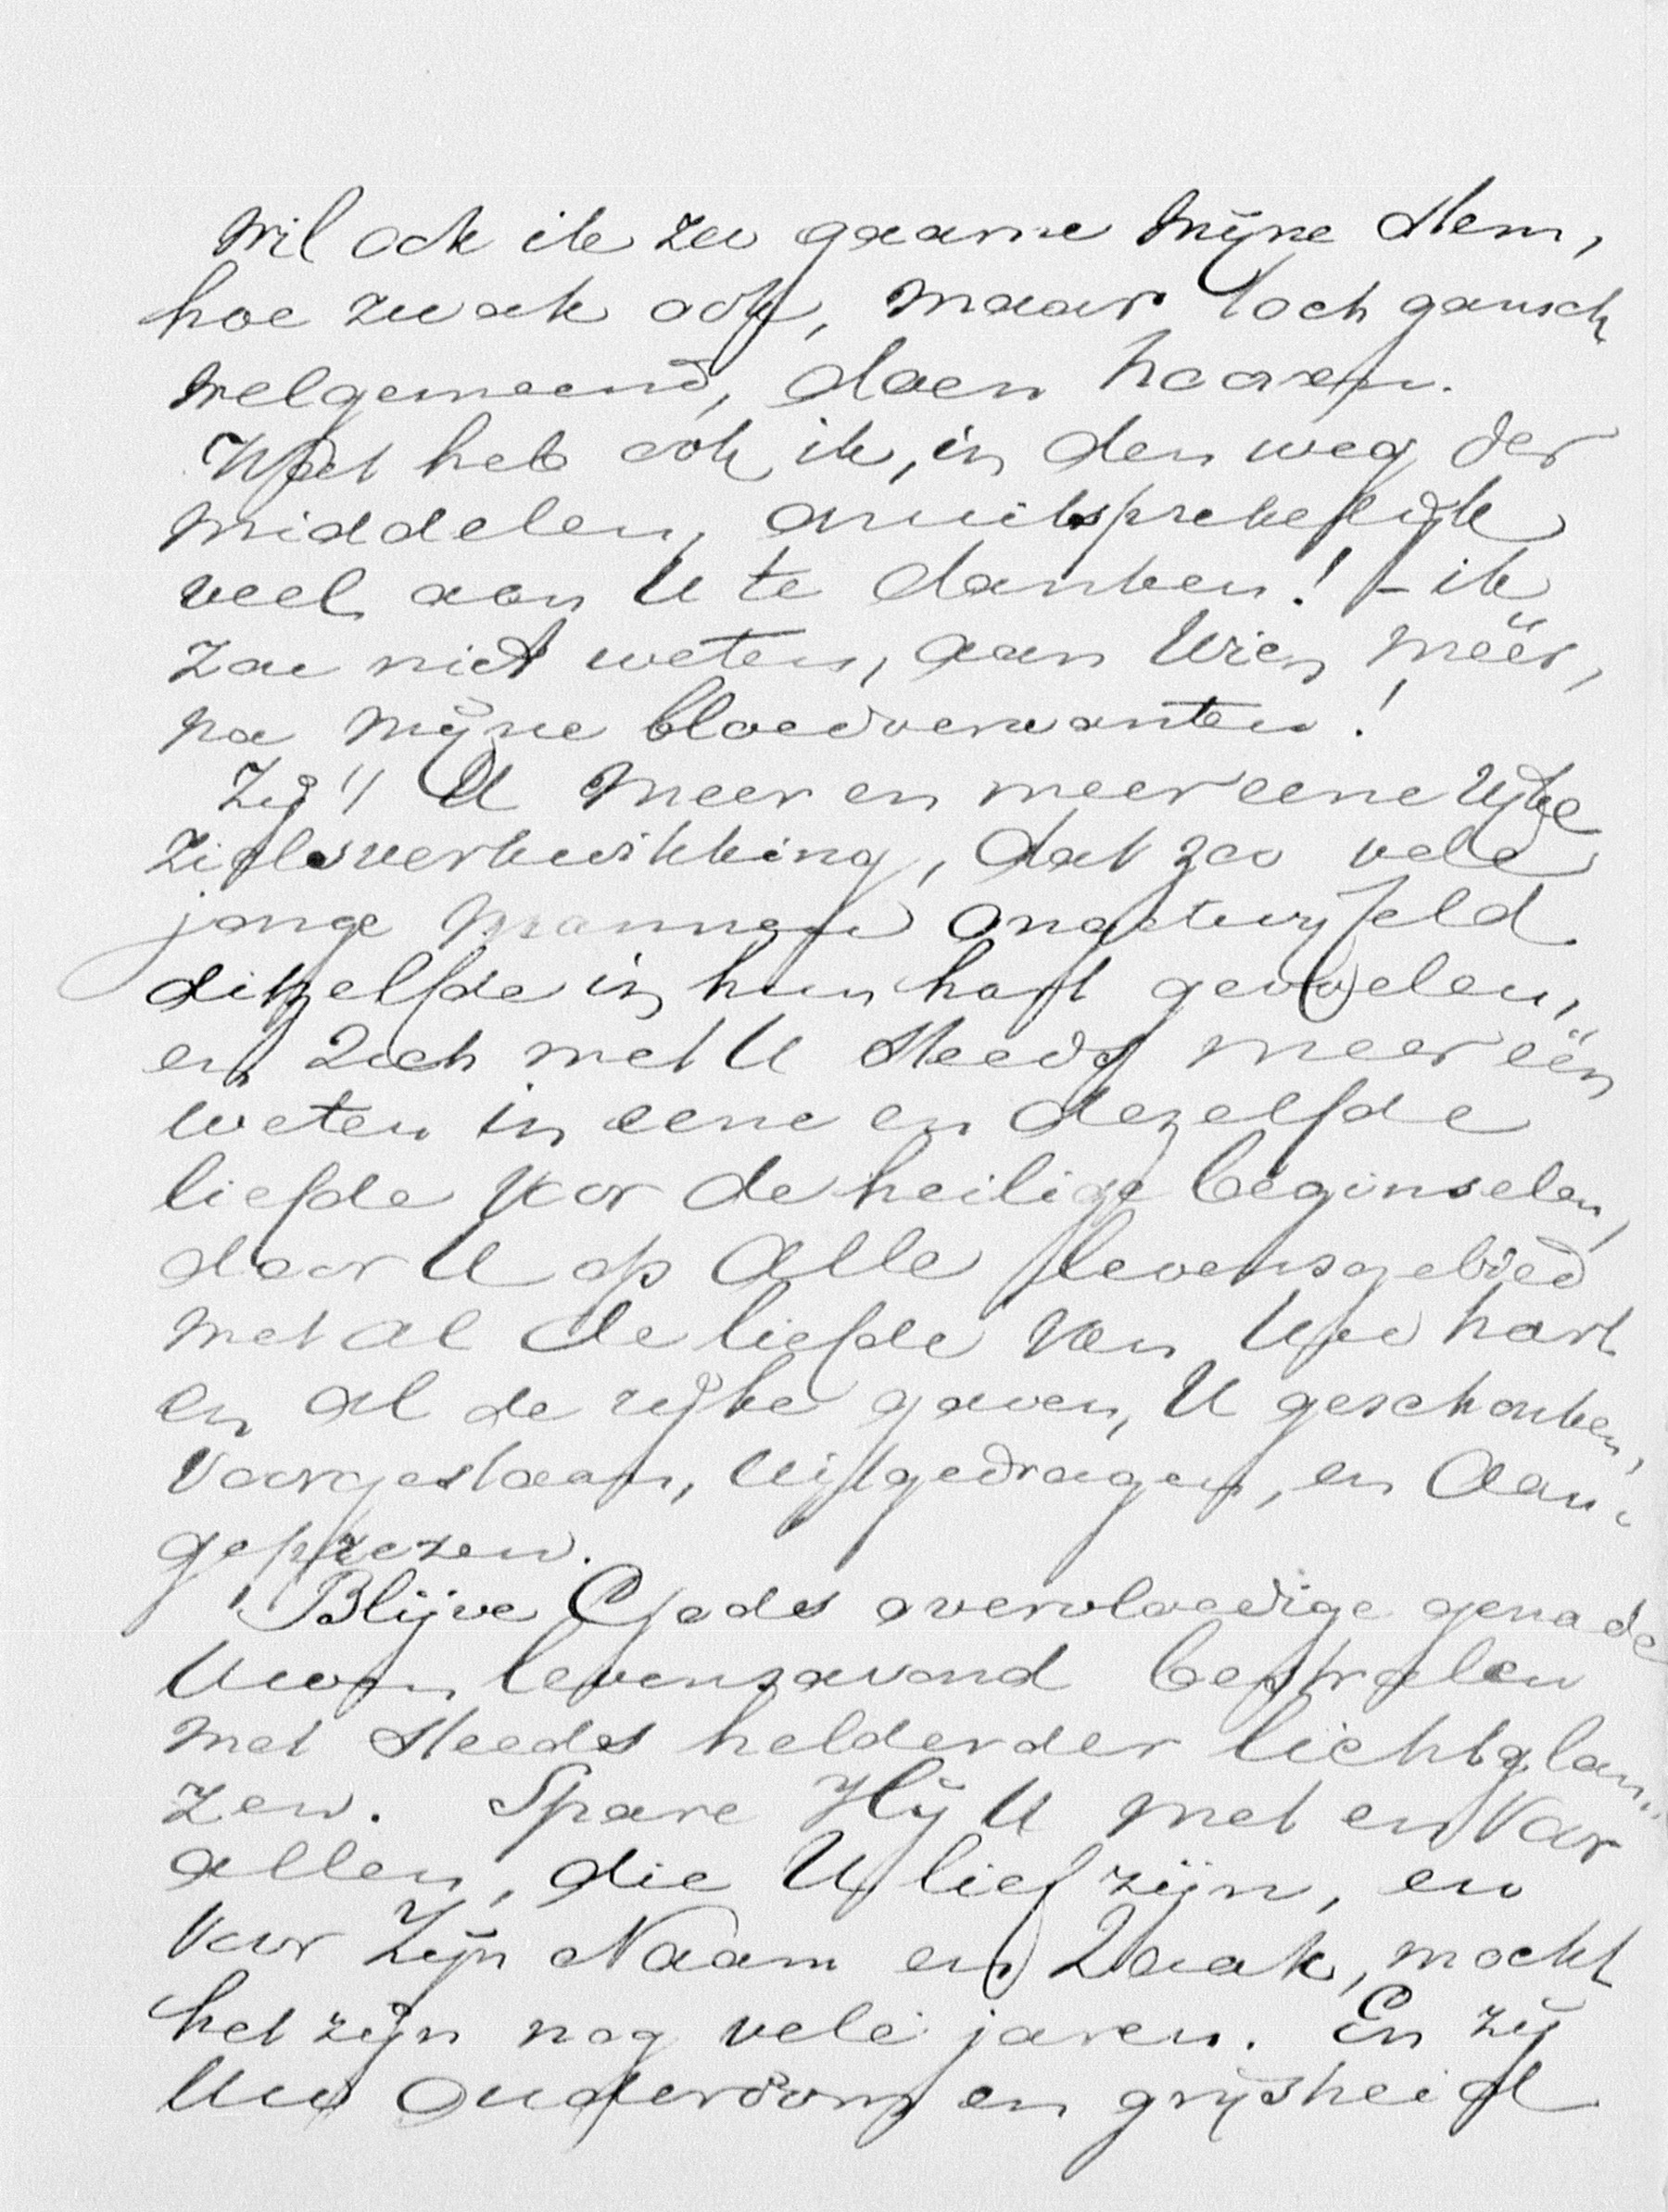 wil ook ik zoo gaarne mijne stem,
hoe zwak ook, maar toch gansch
welgemeend, doen hooren.
Wat heb ook ik, in den weg der
middelen, onuitsprekelijk
veel aan U te danken! – ik
zou niet weten, aan wien méér,
na mijne bloedverwanten!
Zij 't U meer en meer eene rijke
zielsverkwikking, dat zoo vele
jonge mannen ongetwijfeld
ditzelfde in hun hart gevoelen,
en zich met U steeds meer één
weten in eene en dezelfde
liefde voor de heilige beginselen,
door U op alle levensgebied
met al de liefde van Uw hart
en al de rijke gaven, U geschonken,
voorgestaan, uitgedragen, en aan-
geprezen.
Blijve Gods overvloedige genade
Uwen levensavond bestralen
met steeds helderder lichtglan-
zen. Spare Hij U met en voor
allen, die U lief zijn, en
voor Zijn Naam en Zaak, mocht
het zijn nog vele jaren. En zij
Uw ouderdom en grijsheid